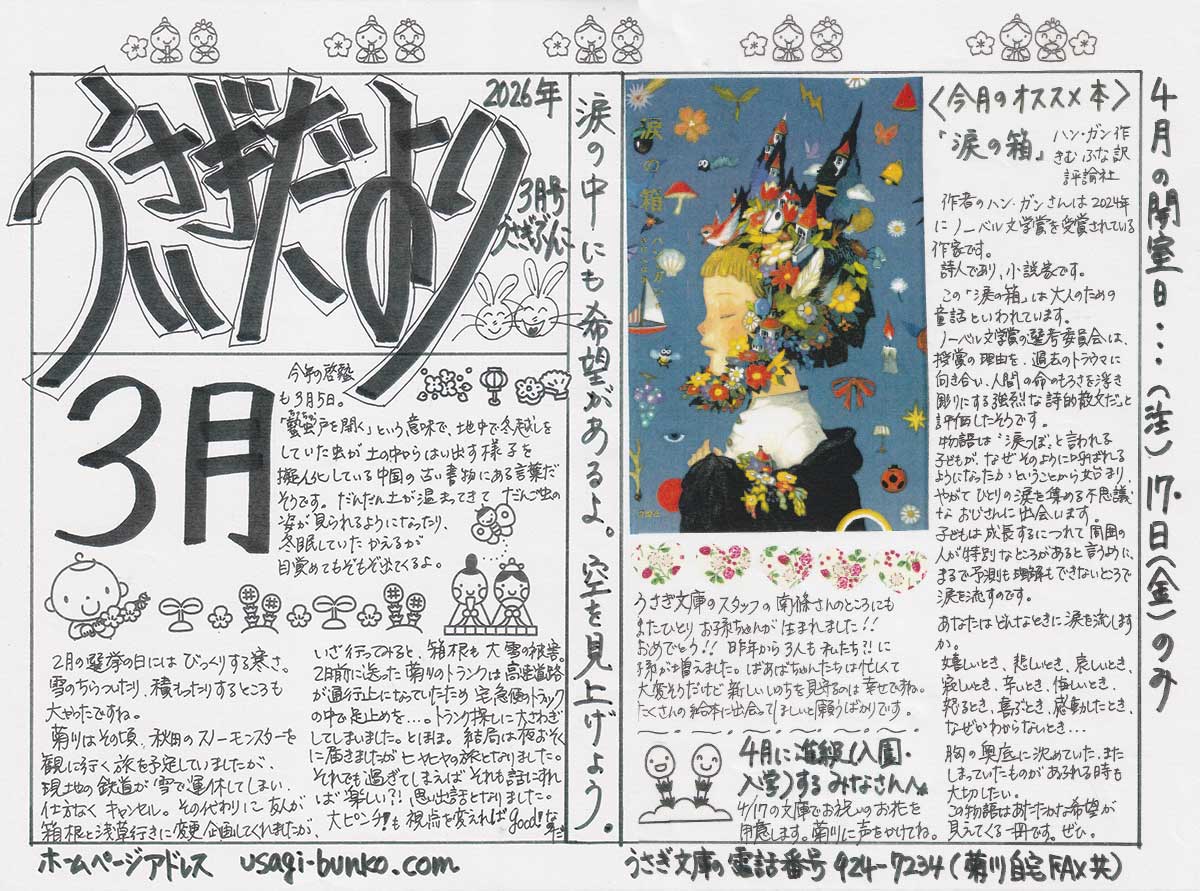 うさぎだより
2026年
3月号
うさぎぶんこ
3月
今年の啓蟄
も3月5日。
「蟄虫戸を開く」という意味で、地中で冬越しを
していた虫が土の中からはい出す様子を
擬人化している中国の古い書物にある言葉だ
そうです。だんだん土が温まってきてだんご虫の
姿が見られるようになったり、
冬眠していたかえるが
目覚めてもぞもぞ出てくるよ。
2月の選挙の日にはびっくりする寒さ。
雪のちらついたり、積もったりするところも
大かったですね。
菊川はその頃、秋田のスノーモンスターを
観に行く旅を予定していましたが、
現地の鉄道が雪で運休してしまい、
仕方なくキャンセル。その代わりに友人が
箱根と浅草行きに変更企画してくれましたが、
いざ行ってみると、箱根も大雪の被害。
2日前に送った菊川のトランクは高速道路
が通行止になっていたため宅急便のトラック
の中で足止めを…。トランク探しに大さわぎ
してしまいました。とほほ。結局は夜おそく
に届きましたがヒヤヒヤの旅となりました。
それでも過ぎてしまえばそれも話にすれ
ば楽しい?!思い出話となりました。
大ピンチ!も視点を変えればgood!なのだ
涙の中にも希望があるよ。空を見上げよう。
涙の箱
〈今月のオススメ本〉
「涙の箱」
ハン・ガン作
きむ ふな訳
評論社
作者のハン・ガンさんは2024年
にノーベル文学賞を受賞されている
作家です。
詩人であり、小説家です。
この「涙の箱」は大人のための
童話といわれています。
ノーベル文学賞の選考委員会は、
授賞の理由を、過去のトラウマに
向き合い、人間の命のもろさを浮き
彫りにする強烈な詩的散文だと
評価したそうです。
物語は“涙つぼ”と言われる
子どもが、なぜそのように呼ばれる
ようになったか?ということから始まり、
やがてひとりの涙を集める不思議
なおじさんに出会います。
子どもは成長するにつれて周囲の
人が特別なところがあると言うように、
まるで予測も理解もできないところで
涙を流すのです。
あなたはどんなときに涙を流します
か。
嬉しいとき、悲しいとき、哀しいとき、
寂しいとき、辛いとき、悔しいとき、
怒るとき、喜ぶとき、感動したとき、
なぜかわからないとき…
胸の奥底に沈めていた、また
しまっていたものがあふれる時も
大切したい。
この物語はあたたかな希望が
見えてくる一冊です。ぜひ。
うさぎ文庫のスタッフの南條さんのところにも
またひとりお孫ちゃんが生まれました!!
おめでとう!!昨年から3人もれたち?!に
子孫が増えました。ばあばちゃんたちは忙しくて
大変そうだけど新しいいのちを見守るのは幸せですね。
たくさんの絵本に出会ってほしいと願うばかりです。
4月に進級(入園・
入学)するみなさんへ。
4/17の文庫でお祝いのお花を
用意します。菊川に声をかけてね。
4月の開室日…(注)17日(金)のみ
ホームページアドレス usagi-bunko.com
うさぎ文庫の電話番号 924-7234(菊川自宅FAX共)